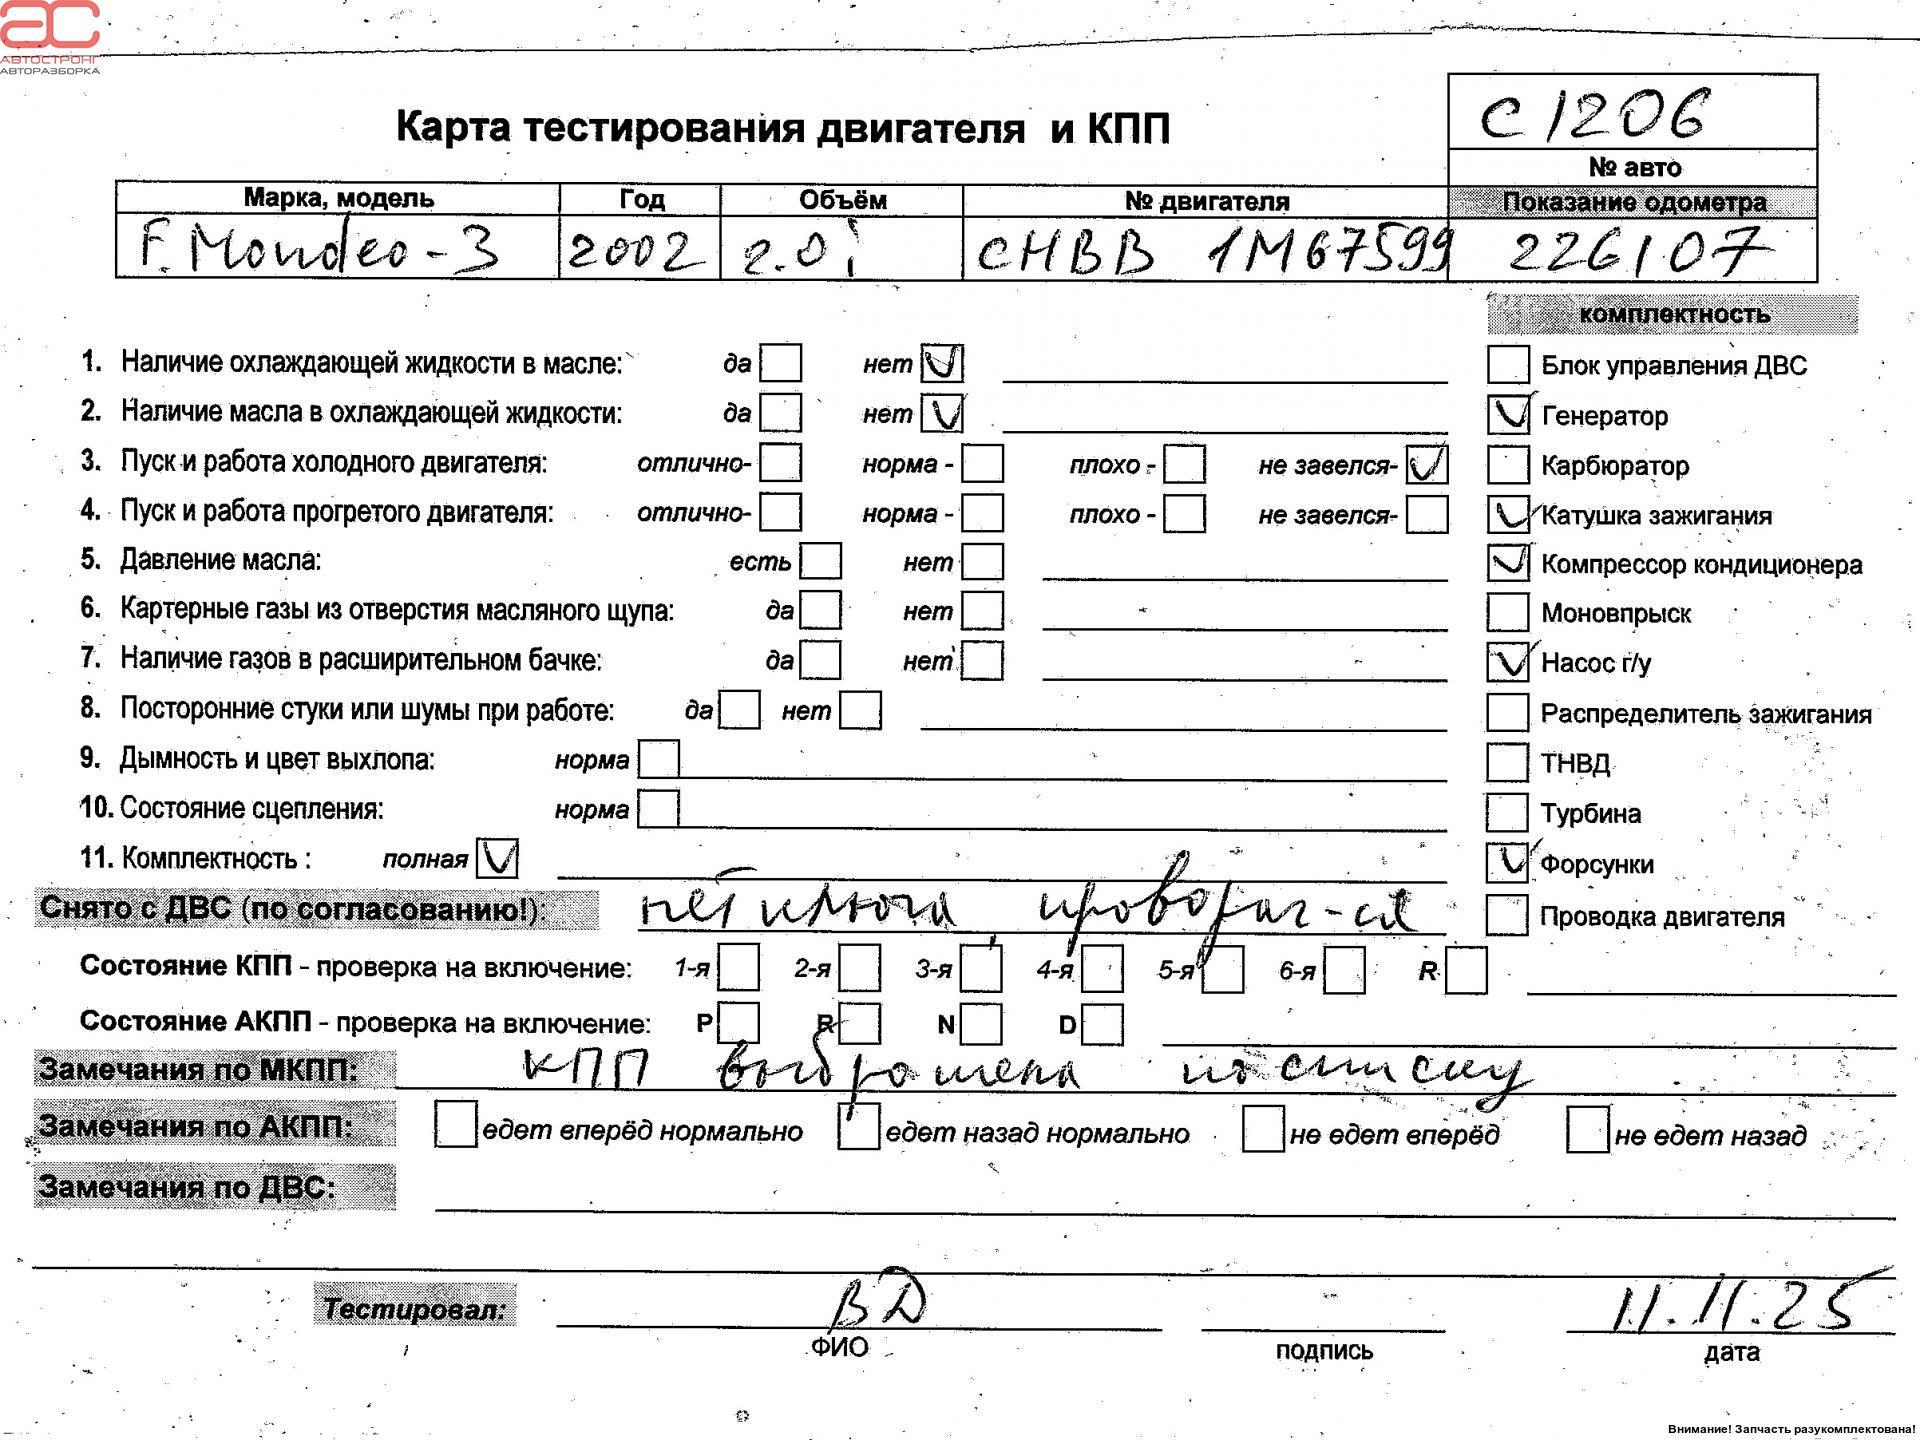 АС
АВТОСТРОНГ
АВТОРАЗБОРКА
С1206
Карта тестирования двигателя и КПП
№ авто
Марка, модель Год Объём № двигателя Показание одометра
F. Mondeo-3 2002 2.0i CHBB 1M67599 226107
комплектность
1. Наличие охлаждающей жидкости в масле: да нет Блок управления ДВС
2. Наличие масла в охлаждающей жидкости: да нет Генератор
3. Пуск и работа холодного двигателя: отлично- норма - плохо - не завелся- Карбюратор
4. Пуск и работа прогретого двигателя: отлично- норма - плохо - не завелся- Катушка зажигания
5. Давление масла: есть нет Компрессор кондиционера
6. Картерные газы из отверстия масляного щупа: да нет Моновпрыск
7. Наличие газов в расширительном бачке: да нет Насос г/у
8. Посторонние стуки или шумы при работе: да нет Распределитель зажигания
9. Дымность и цвет выхлопа: норма ТНВД
10. Состояние сцепления: норма Турбина
11. Комплектность : полная Форсунки
Снято с ДВС (по согласованию!): нет ключа, проворач-ся Проводка двигателя
Состояние КПП - проверка на включение: 1-я 2-я 3-я 4-я 5-я 6-я R
Состояние АКПП - проверка на включение: P R N D
Замечания по МКПП: КПП выброшена по списку
Замечания по АКПП: едет вперёд нормально едет назад нормально не едет вперёд не едет назад
Замечания по ДВС:
Тестировал: ВД 11.11.25
ФИО подпись дата
Внимание! Запчасть разукомплектована!